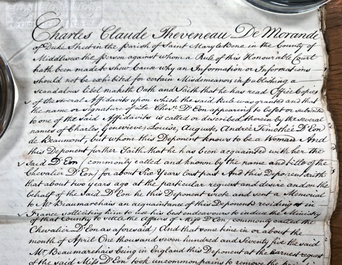 Charles Claude Theveneau De Morande
of Duke Street in the Parish of Saint Mary le Bone in the County of
Middlesex the person against whom a Rule of this Honourable Court
hath been made to shew Cause why an Information or Informations
should not be exhibited for certain Misdemeanors in publishing a
Scandalous Libel maketh Oath and Saith that he has read Office Copies
of the several Affidavits upon which the said Rule was granted and that
the name or signature of the D'Eon appearing to be set or subscribed
to one of the said Affidavits is called or described therein by the several
names of Charles Genevieve Louise, Auguste, Andrée Timothée D'Eon
de Beaumont, but whom this Deponent knows to be a Woman And
this Deponent further Saith that he has been acquainted with her the
said D'Eon (commonly called and known by the name and title of the
Chevalier D'Eon) for about Six Years last past And this Deponent saith
that about two years ago at the particular request and desire and on the
behalf of the said D'Eon he this Deponent wrote and sent a Memorial
to Mr Beaumarchais an acquaintance of this Deponents residing in
France solliciting him to use his best endeavours to induce the Ministry
of that Country to settle the affairs of Miss D'Eon (commonly called the
Chevalier D'Eon as aforesaid) And that some time in or about the
month of April One thousand seven hundred and Seventy five the said
Mr Beaumarchais being in England this Deponent at the earnest request
of the said Miss D'Eon took uncommon pains to remove the